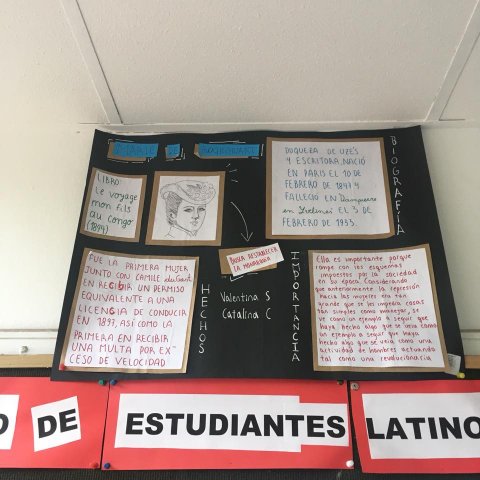 DE
LIBRO:
Le voyage
mon fils
au Congo
(1894)
DUQUESA DE UZÉS
Y ESCRITORA. NACIÓ
EN PARIS EL 10 DE
FEBRERO DE 1847 Y
FALLECIÓ EN Dampierre
en Yvelines EL 3 DE
FEBRERO DE 1933.
BIOGRAFÍA
BUSCA RESTABLECER
LA MONARQUIA
FUE LA PRIMERA MUJER
JUNTO CON CAMILLE du Gast
EN RECIBIR UN PERMISO
EQUIVALENTE A UNA
LICENCIA DE CONDUCIR
EN 1897, ASÍ COMO LA
PRIMERA EN RECIBIR
UNA MULTA POR EX
CESO DE VELOCIDAD
HECHOS
Valentina S
Catalina C
IMPORTANCIA
Ella es importante porque
rompe con los esquemas
impuestos por la sociedad
en su época. Considerando
que anteriormente la represión
hacia las mujeres era tan
grande que se les impedía cosas
tan simples como manejar, se
ve como un ejemplo a seguir que
haya hecho algo que se veía como
un ejemplo a seguir que haya
hecho algo que se veía como una
actividad de hombres actuando
tal como una revolucionaria
O DE ESTUDIANTES LATINO